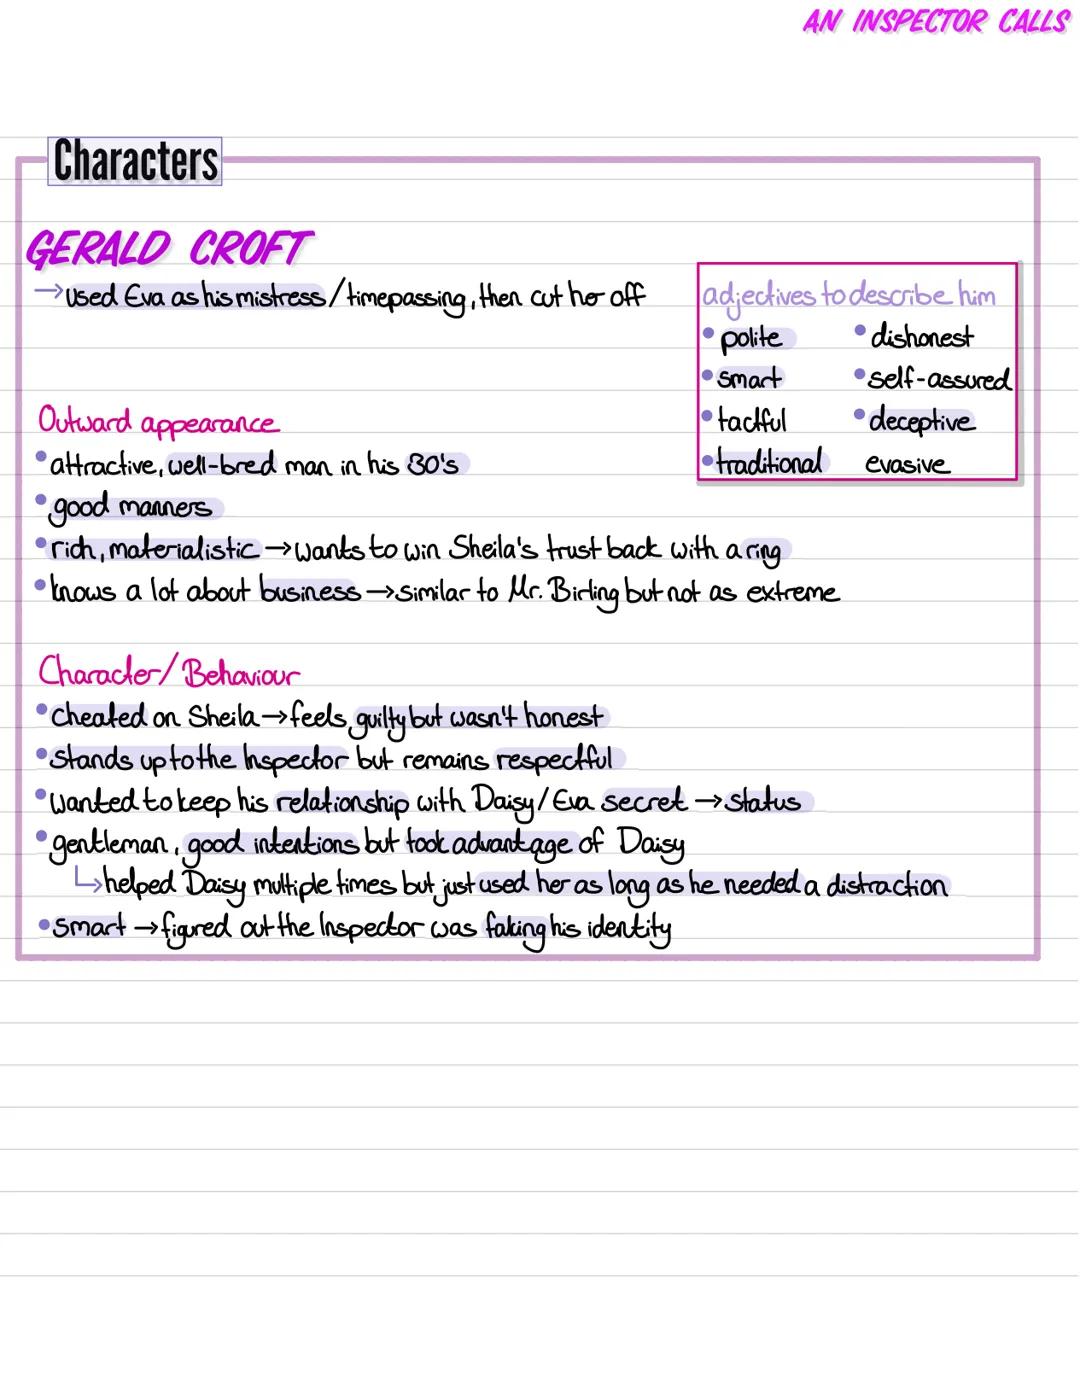 AN INSPECTOR CALLS
Characters
GERALD CROFT
→ used Eva as his mistress/timepassing, then cut her off
adjectives to describe him
• polite
• smart
• tactful
• traditional
• dishonest
• self-assured
• deceptive
evasive
Outward appearance
• attractive, well-bred man in his 30's
• good manners
• rich, materialistic → wants to win Sheila's trust back with a ring
• knows a lot about business → similar to Mr. Birling but not as extreme
Character/Behaviour
• cheated on Sheila → feels guilty but wasn't honest
• stands up to the Inspector but remains respectful
• wanted to keep his relationship with Daisy/Eva secret → status
• gentleman, good intentions but took advantage of Daisy
↳ helped Daisy multiple times but just used her as long as he needed a distraction
• smart → figured out the Inspector was faking his identity